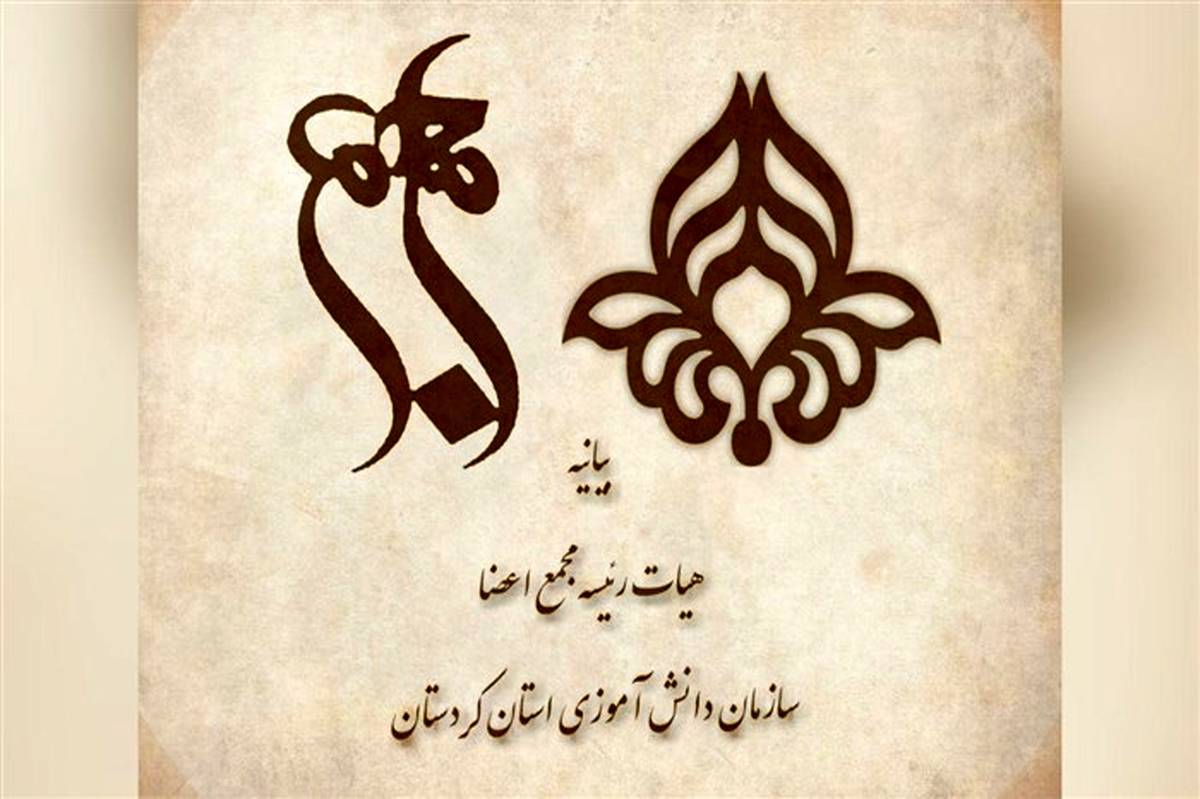 بیانیه
هیات رئیسه مجمع اعضا
سازمان دانش آموزی استان کردستان